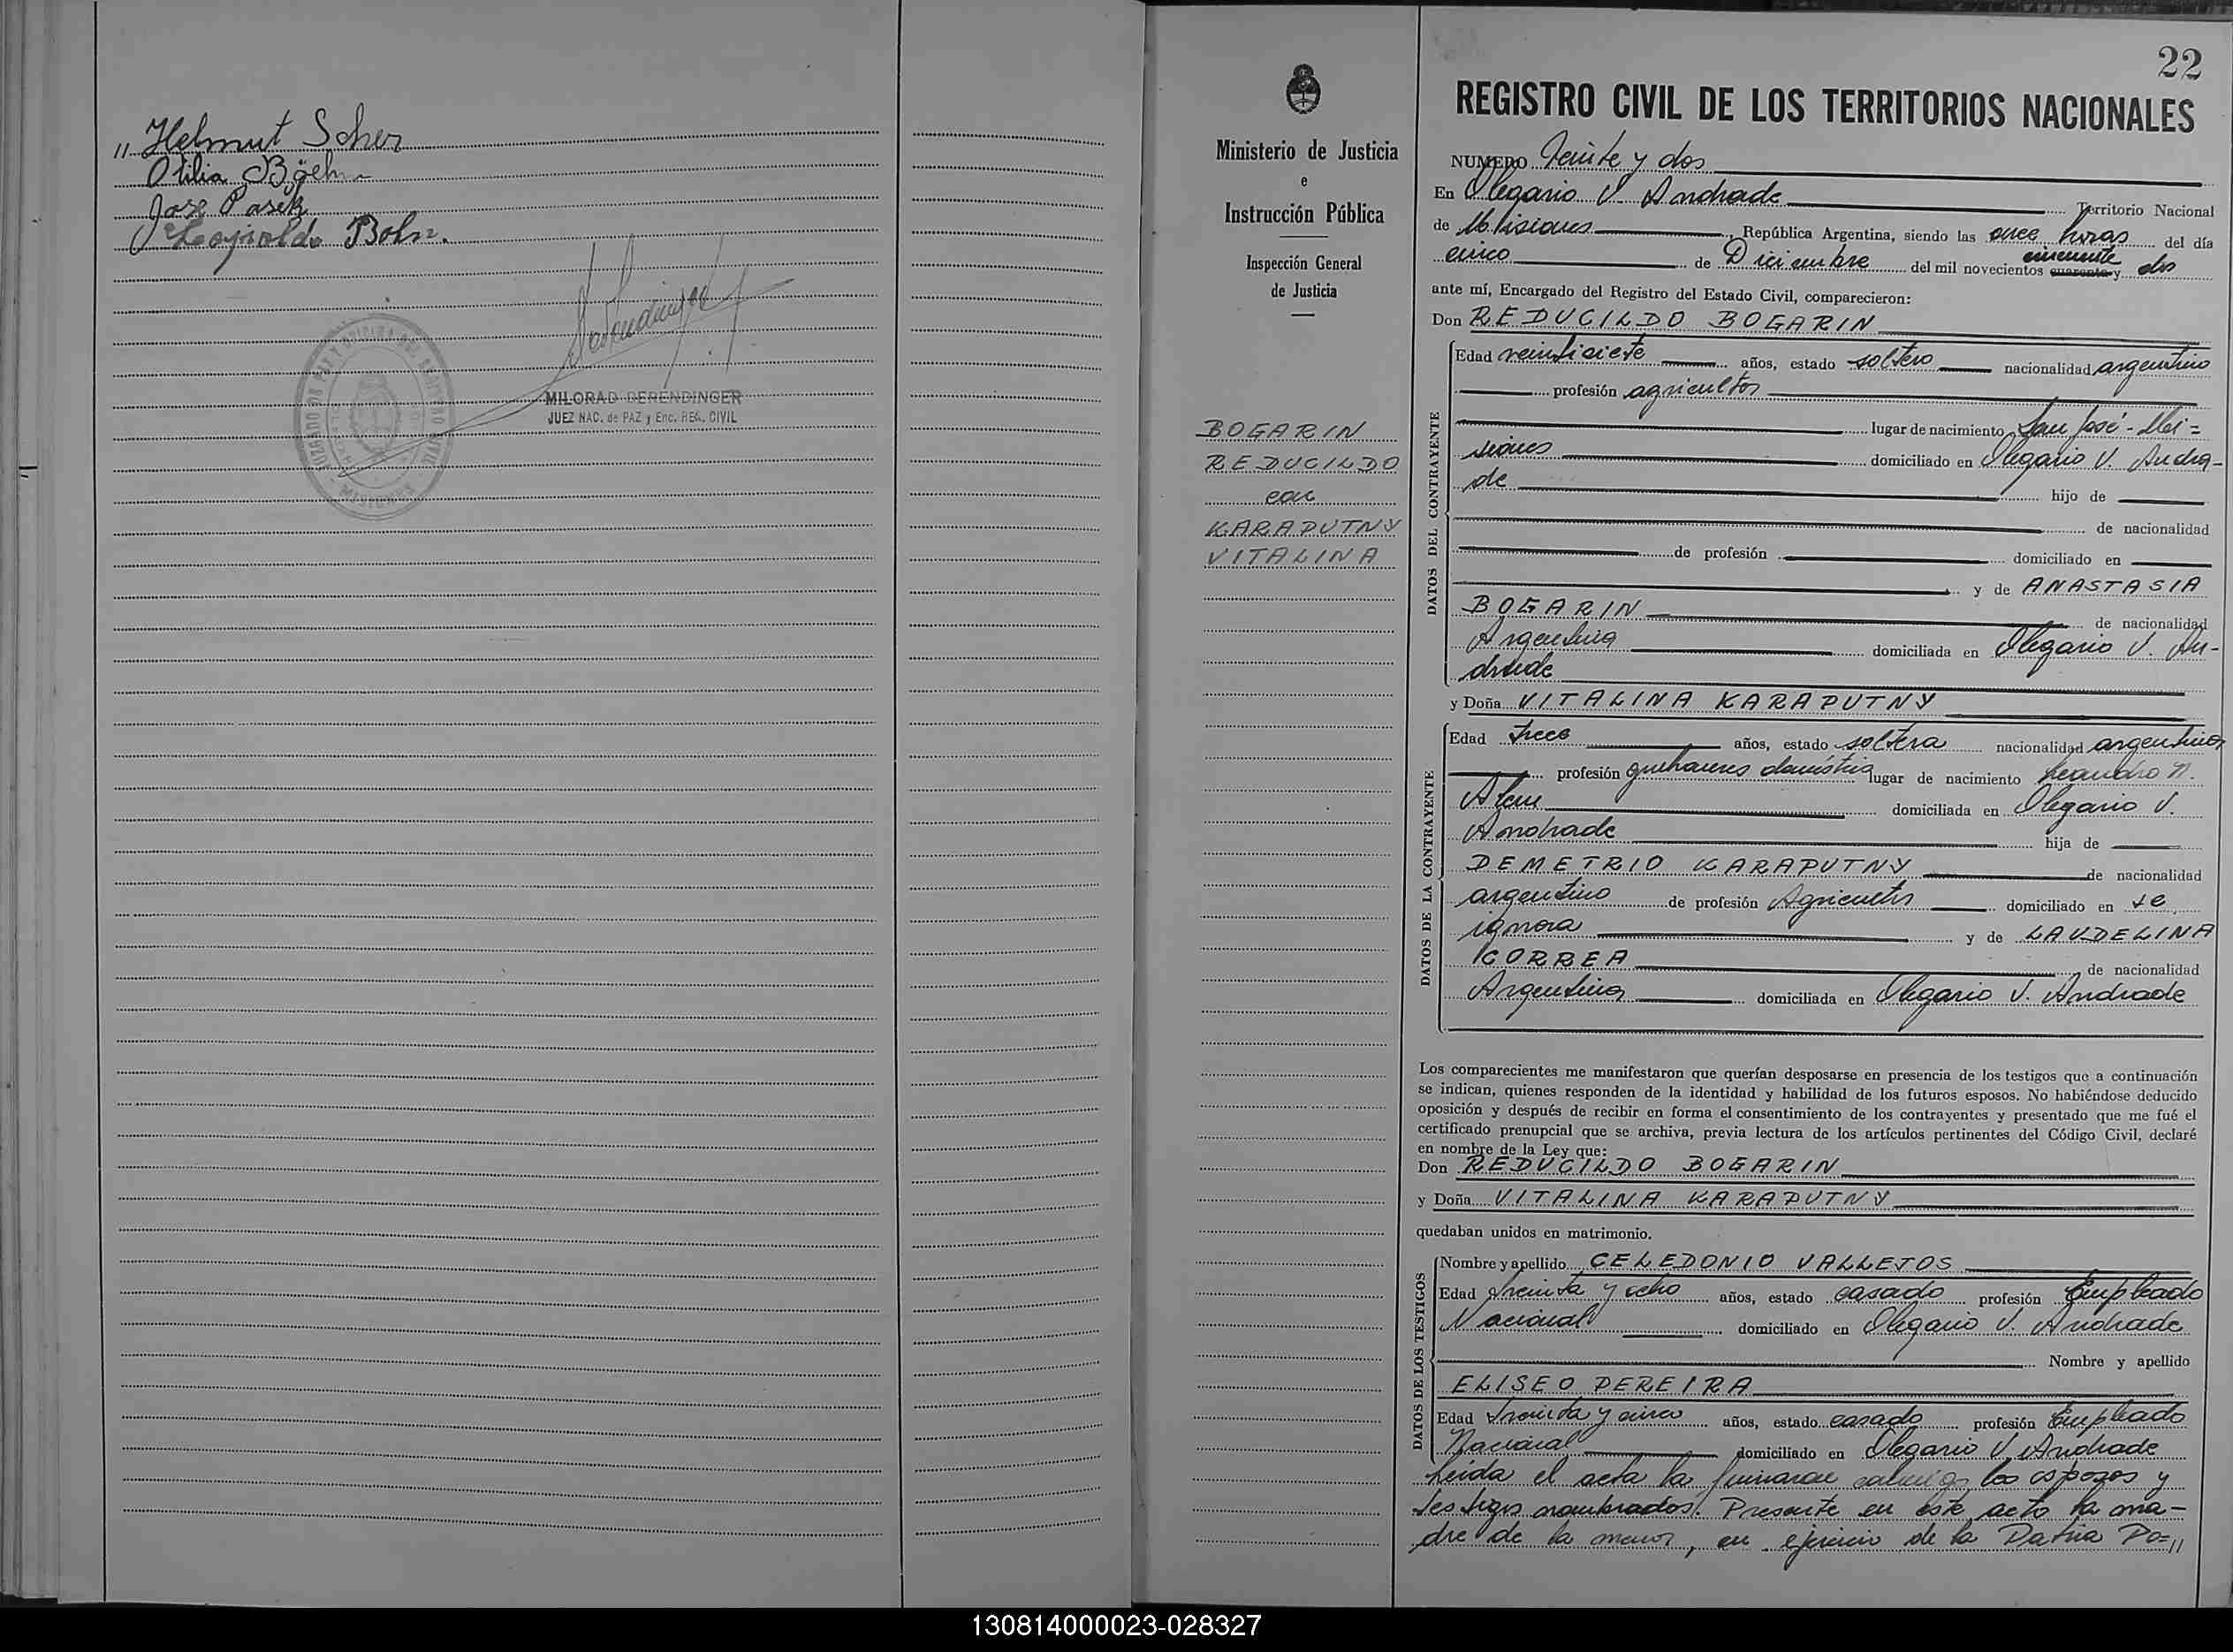 " Helmut Scher
Otilia Böehm
Jose Pasek
Leopoldo Bohn.
MILORAD DERENDINGER
JUEZ NAC. de PAZ y Enc. REG. CIVIL
MISIONES
Ministerio de Justicia
e
Instrucción Pública
Inspección General
de Justicia
BOGARIN
REDUCILDO
con
KARAPUTNY
VITALINA
22
REGISTRO CIVIL DE LOS TERRITORIOS NACIONALES
NUMERO Veinte y dos
En Olegario V. Andrade Territorio Nacional
de Misiones, República Argentina, siendo las once horas del día
cinco de Diciembre del mil novecientos cuarenta y cincuenta dos
ante mí, Encargado del Registro del Estado Civil, comparecieron:
Don REDUCILDO BOGARIN
DATOS DEL CONTRAYENTE
Edad veintisiete años, estado soltero nacionalidad argentino
profesión agricultor
lugar de nacimiento San José - Mi=
siones domiciliado en Olegario V. Andra-
de hijo de
de nacionalidad
de profesión domiciliado en
y de ANASTASIA
BOGARIN de nacionalidad
Argentina domiciliada en Olegario V. An-
drade
y Doña VITALINA KARAPUTNY
DATOS DE LA CONTRAYENTE
Edad trece años, estado soltera nacionalidad argentina
profesión quehaceres doméstica lugar de nacimiento Leandro N.
Alem domiciliada en Olegario V.
Andrade hija de
DEMETRIO KARAPUTNY de nacionalidad
argentino de profesión Agricultor domiciliado en se
ignora y de LAUDELINA
CORREA de nacionalidad
Argentina domiciliada en Olegario V. Andrade
Los comparecientes me manifestaron que querían desposarse en presencia de los testigos que a continuación
se indican, quienes responden de la identidad y habilidad de los futuros esposos. No habiéndose deducido
oposición y después de recibir en forma el consentimiento de los contrayentes y presentado que me fué el
certificado prenupcial que se archiva, previa lectura de los artículos pertinentes del Código Civil, declaré
en nombre de la Ley que:
Don REDUCILDO BOGARIN
y Doña VITALINA KARAPUTNY
quedaban unidos en matrimonio.
DATOS DE LOS TESTIGOS
Nombre y apellido CELEDONIO VALLEJOS
Edad treinta y ocho años, estado casado profesión Empleado
Nacional domiciliado en Olegario V. Andrade
Nombre y apellido
ELISEO PEREIRA
Edad treinta y cinco años, estado casado profesión Empleado
Nacional domiciliado en Olegario V. Andrade
Leida el acta la firmaron conmigo, los esposos y
testigos nombrados. Presente en este acto la ma-
dre de la menor, en ejercicio de la Patria Po= "
130814000023-028327